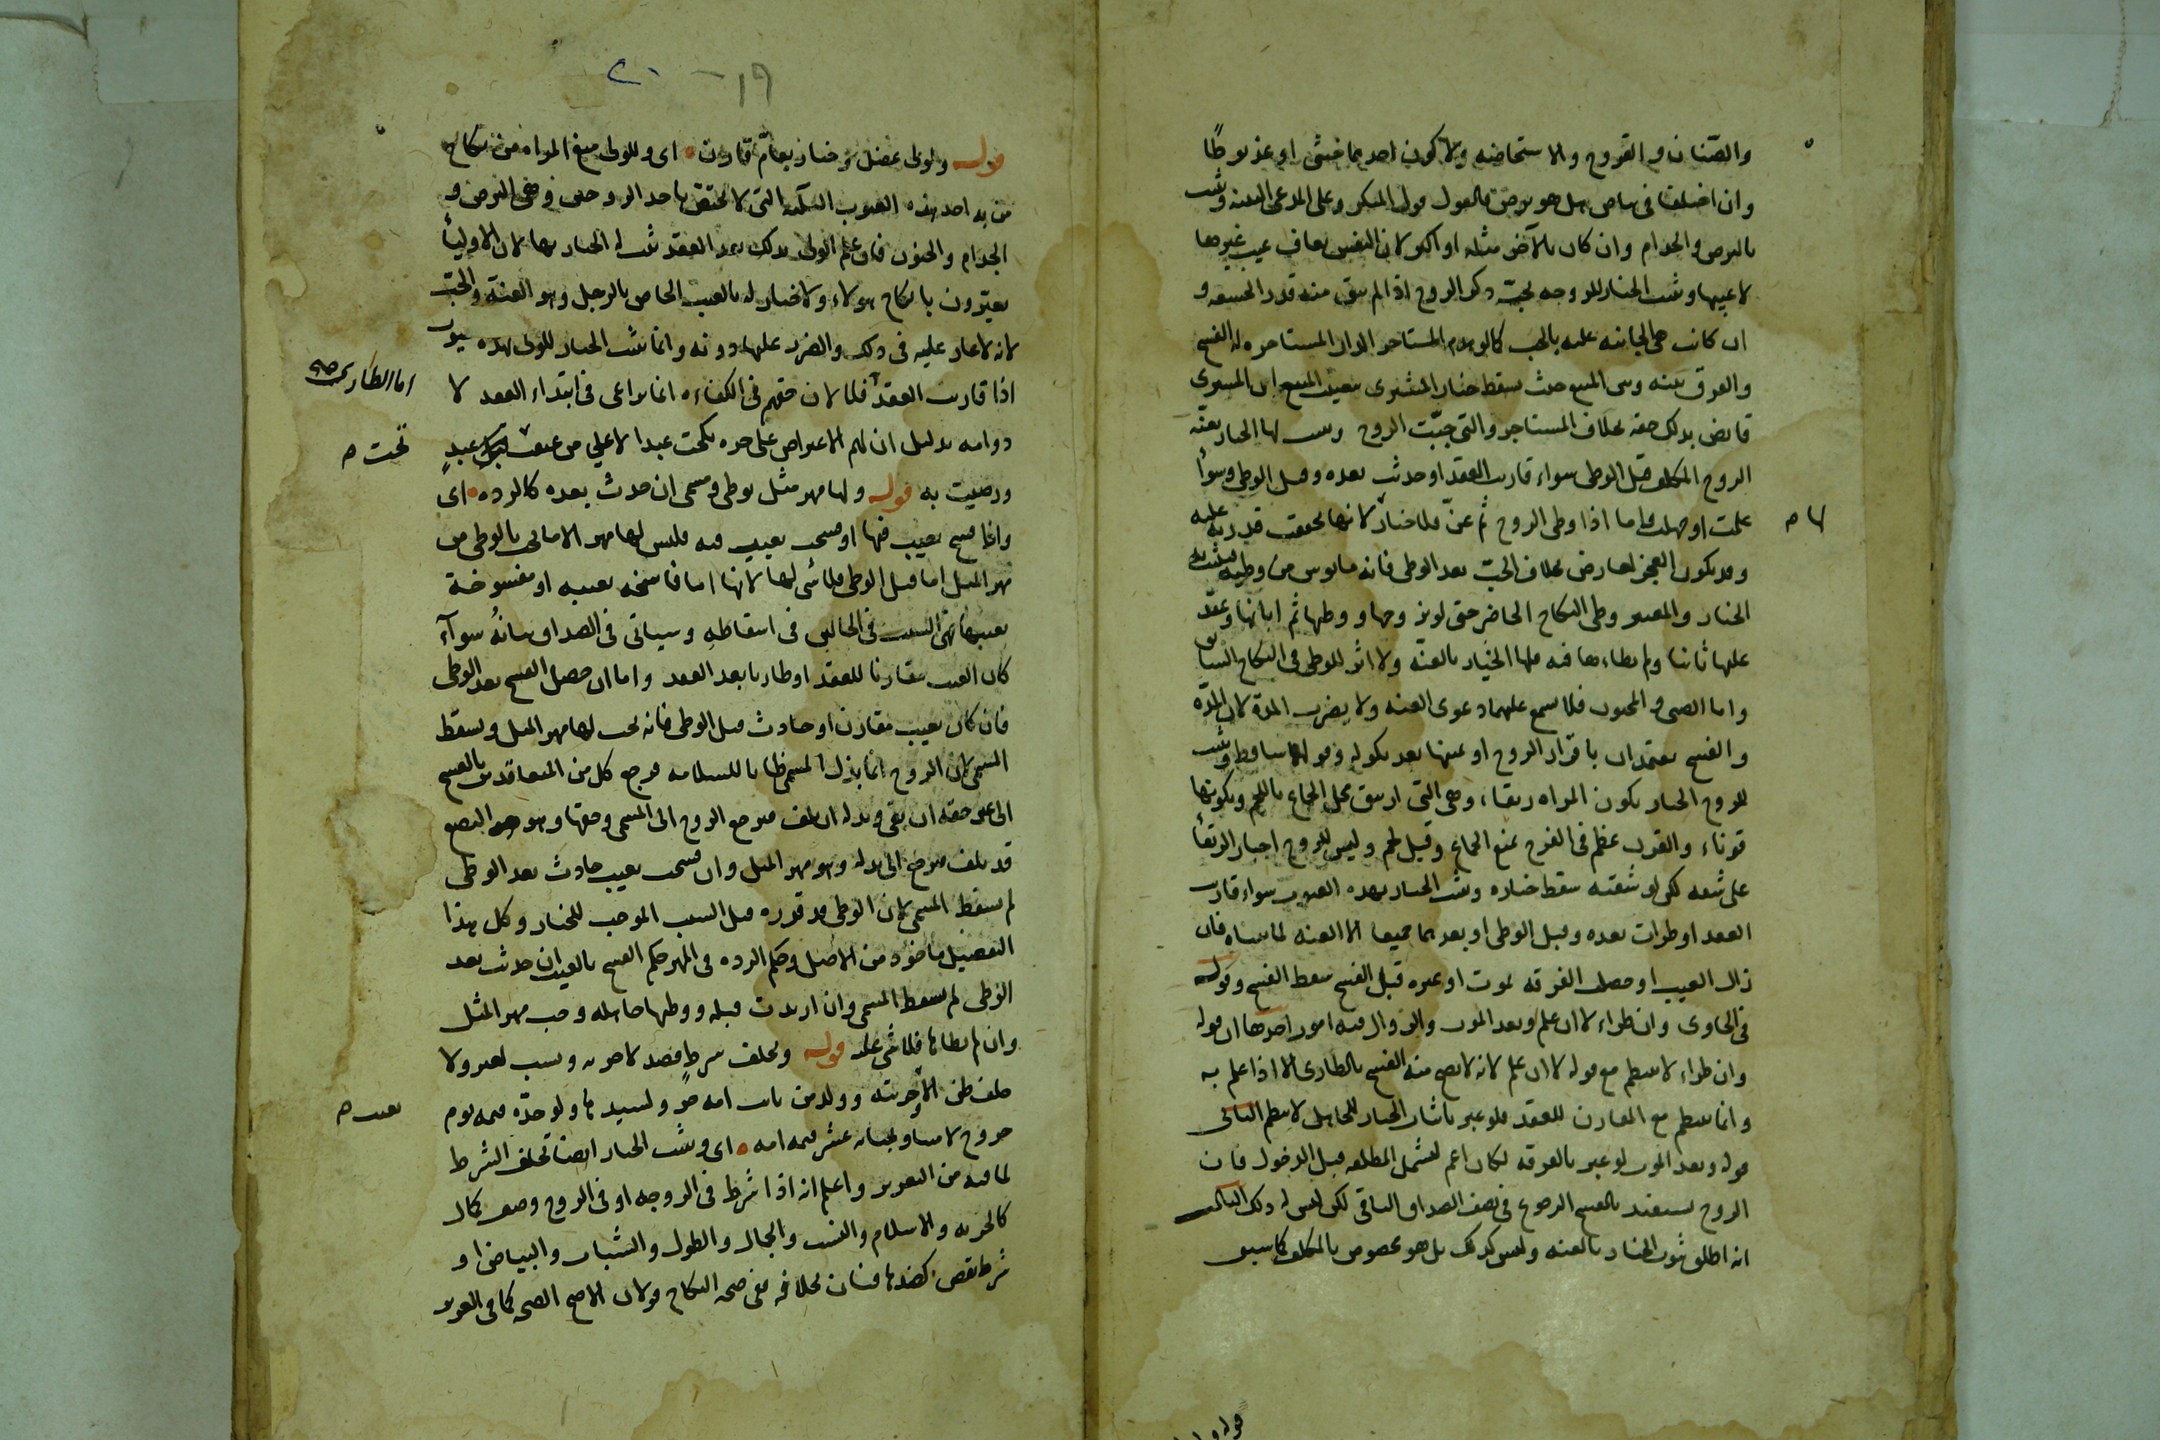 والصنان والقروح والاستحاضه ولا كون احدهما خنثى او عذيوطًا
وان اختلفا فى بياض هل هو برص فالقول قول المنكر وعلى المدعى البينه وثبت
بالبرص والجدام وان كان بالآخر مثله او اكبر لان النفس تعاف عيب غيرها
لا عيبها وثبت الخيار للزوجه بجبّ ذكر الزوج اذا لم يبق منه قدر الحشفه و
ان كانت هى الجانيه عليه بالجب كما لو هدم المستاجر الدار المستاجره له الفسخ
والفرق بينه وبين المبيع حيث يسقط خيار المشترى بتعييب المبيع ان المشترى
قابض بذلك حقه بخلاف المستاجر والتى جبّت الزوج ويثبت لها الخيار بعنّة
الزوج المكلف قبل الوطى سواء قارنت العقد او حدثت بعده وقبل الوطى وسوأ
علمت او جهلت واما اذا وطى الزوج ثم عنّ فلا خيار لانها تحققت قدرته عليه
لها صح
وقد يكون العجز لعارض بخلاف الجبّ بعد الوطى فانه مايوس من وطيه فيثبت به
الخيار والمعتبر وطى النكاح الحاضر حتى لو تزوجها ووطيها ثم ابانها وعقد
عليها ثانيا ولم يطاها فيه فلها الخيار بالعنّه ولا اثر للوطى فى النكاح السابق
واما الصبى والمجنون فلا تسمع عليهما دعوى العنه ولا يضرب المدة لان المدّه
والفسخ يعتمدان باقرار الزوج او يمينها بعد نكوله وقولهما ساقط وثبت
للزوج الخيار بكون المراه رتقاء وهى التى ارتتق محل الجماع باللحم وبكونها
قرناء والقرن عظم فى الفرج يمنع الجماع وقيل لحم وليس للزوج اجبار الرتقأ
على شقه لكن لو شقته سقط خياره ويثبت الخيار بهذه العيوب سواء قارنت
العقد او طرات بعده وقبل الوطى او بعدهما جميعا الا العنه لما بيناه فان
زال العيب او حصلت الفرقه بموت او غيره قبل الفسخ سقط الفسخ وقوله
فى الحاوى وان طراء لا ان علم وبعد الموت والزوال فيه امور احدها ان قوله
وان طراء لا ينتظم مع قوله لا ان علم لانه لا يصح منه الفسخ بالطارى الا اذا علم به
وانما ينتظم مع المقارن للعقد فلو عبر باثبات الخيار للجاهل لانتظم الثانى
قوله وبعد الموت لو عبر بالفرقه لكان اعم لتشمل المطلقه قبل الدخول فان
الزوج يستفيد بالفسخ الرجوع فى نصف الصداق الباقى لكن ليس له ذلك الثالث
انه اطلق ثبوت الخيار بالعنه وليس كذلك بل هو مخصوص بالمكلف كما سبق
١٩
٢٠
قوله ولولى عضل وخيار بعامّ قارن اى وللولى منع المراه من نكاح
من به احد هذه العيوب الثلثه التى لا تختص باحد الزوجين وهى البرص و
الجدام والجنون فان علم الولى بذلك بعد العقد ثبت له الخيار بها لان الاوليأ
يعيّرون بانكاح هولاء ولا خيار له بالعيب الخاص بالرجل وهو العنة والجبّ
لانه لا عار عليه فى ذلك والضرر عليها دونه وانما يثبت الخيار للولى بهذه العيوب
اذا قارنت العقد فلا لان حقهم فى الكفاءه انما يراعى فى ابتداء العقد لا
اما الطارى صح
دوامه بدليل ان لهم الاعتراض على حره نكحت عبدا لا على من عتقت تحت عبدٍ
تحت صح
ورضيت به قوله ولها مهر مثل بوطى ومسمى ان حدث بعده كالرده اى
واذا فسخ بعيب فيها او فسخت بعيب فيه فليس لها مهر الا ما لى بالوطى من
مهر المثل اما قبل الوطى فلا شى لها لانها اما فاسخه بعيبه او مفسوخة
بعيبها فهى السبب فى الحالين فى اسقاطه وسياتى فى الصداق بيانه سوآء
كان العيب مقارنا للعقد او طاريا بعد العقد واما ان حصل الفسخ بعد الوطى
فان كان بعيب مقارن او حادث قبل الوطى فانه يجب لها مهر المثل ويسقط
المسمى لان الزوج انما بذل المسمى ظانا للسلامه فيرجع كل من المتعاقدين بالفسخ
الى عين حقه ان بقى وبدله ان تلف فيرجع الزوج الى المسمى وحقها وهو البضع
قد تلف فيرجع الى بدله وهو مهر المثل وان فسخت بعيب حادث بعد الوطى
لم يسقط المسمى لان الوطى قد قرره قبل السبب الموجب للخيار وكل هذا
التفصيل ماخوذ من الاصل وحكم الرده فى المهر حكم الفسخ بالعيب ان حدثت بعد
الوطى لم يسقط المسمى وان ارتدت قبله ووطيها جاهله وجب مهر المثل
وان لم يطاها فلا شى عليه قوله وبخلف شرطٍ قصد لا حريه ونسب لعبد ولا
خلف ظن الا حريته وولد من بانت امه حر ولسيدها ولو جدّه قيمه يوم
بعيب صح
خروج لا ميتا وبجنايه عشر قيمه امه اى ويثبت الخيار ايضا بخلف الشرط
لما فيه من التغرير واعلم انه اذا شرط فى الزوجه او فى الزوج وصف كمال
كالحريه والاسلام والنسب والجمال والطول والشباب والبياض او
شرط نقص كضدها فبان بخلافه ففى صحه النكاح قولان الاصح الصحه كما فى العزيز